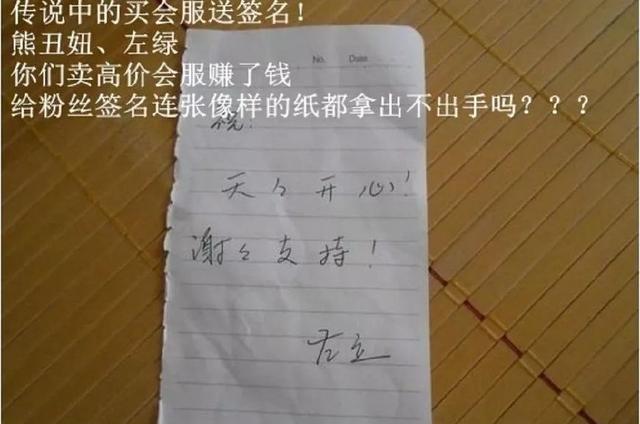 传说中的买会服送签名！
熊丑妞、左绿
你们卖高价会服赚了钱
No. Date
给粉丝签名连张像样的纸都拿出不出手吗？？？
祝!
天々开心!
谢々支持!
左立